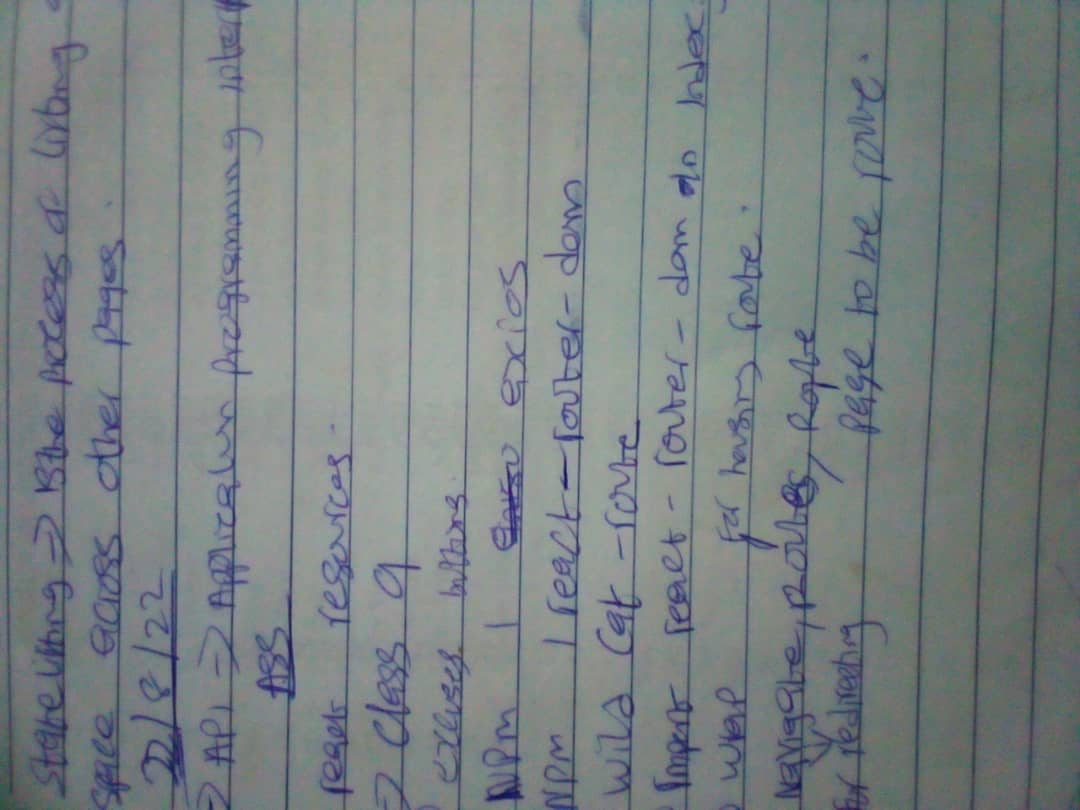 State lifting => is the process of lifting
space across other pages.
/8/22
=> API => Application programming inter
Ass
react resources.
=> Class 9
exercises buttons.
NPm I axios
NPm I react-router-dom
Wild Cat-route
Import react-router-dom on index.
wrap for housing route.
Navigate, Routes, Route
for redirecting page to be route.